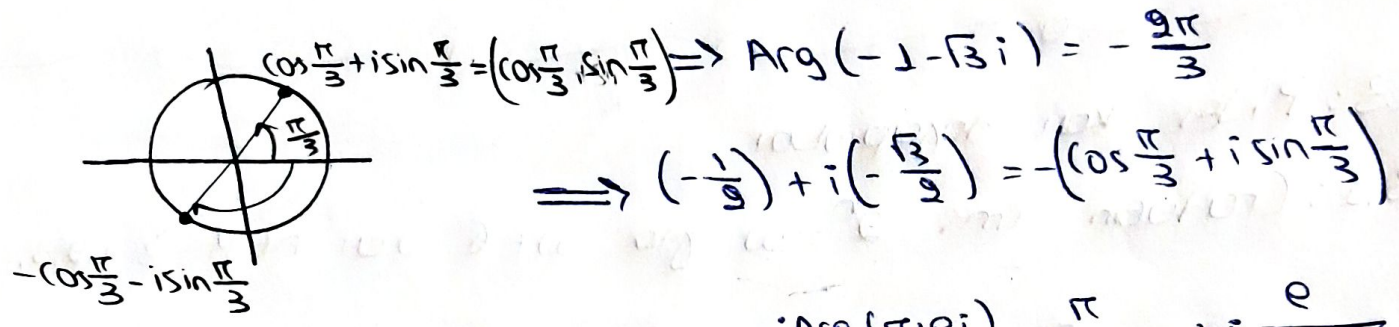 cos π/3 + i sin π/3 = (cos π/3, sin π/3) ⟹ Arg(-1-√3 i) = - 2π/3
π/3
⟹ (-1/2) + i(-√3/2) = -(cos π/3 + i sin π/3)
-cos π/3 - i sin π/3
π e